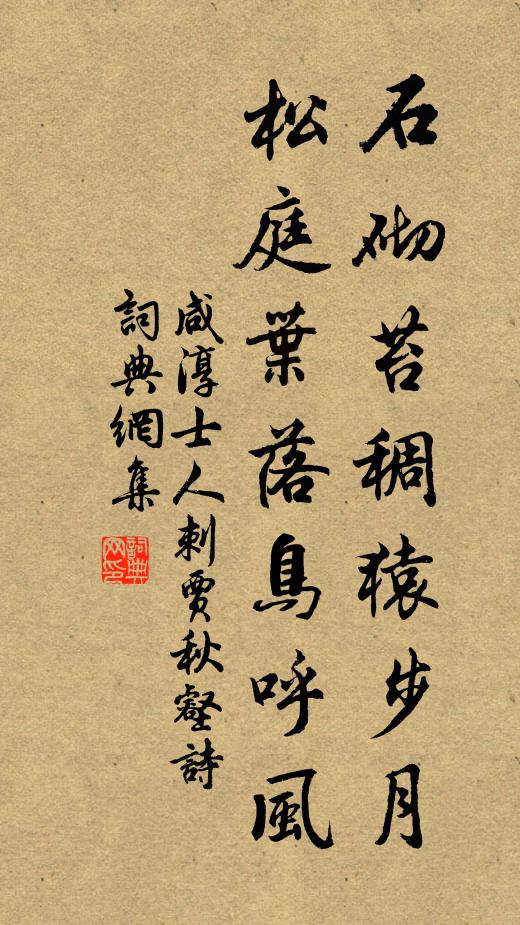 石砌苔稠猿步月
松庭葉落鳥呼風
咸淳士人刺賈秋壑詩
詞典網集
詞典
网印